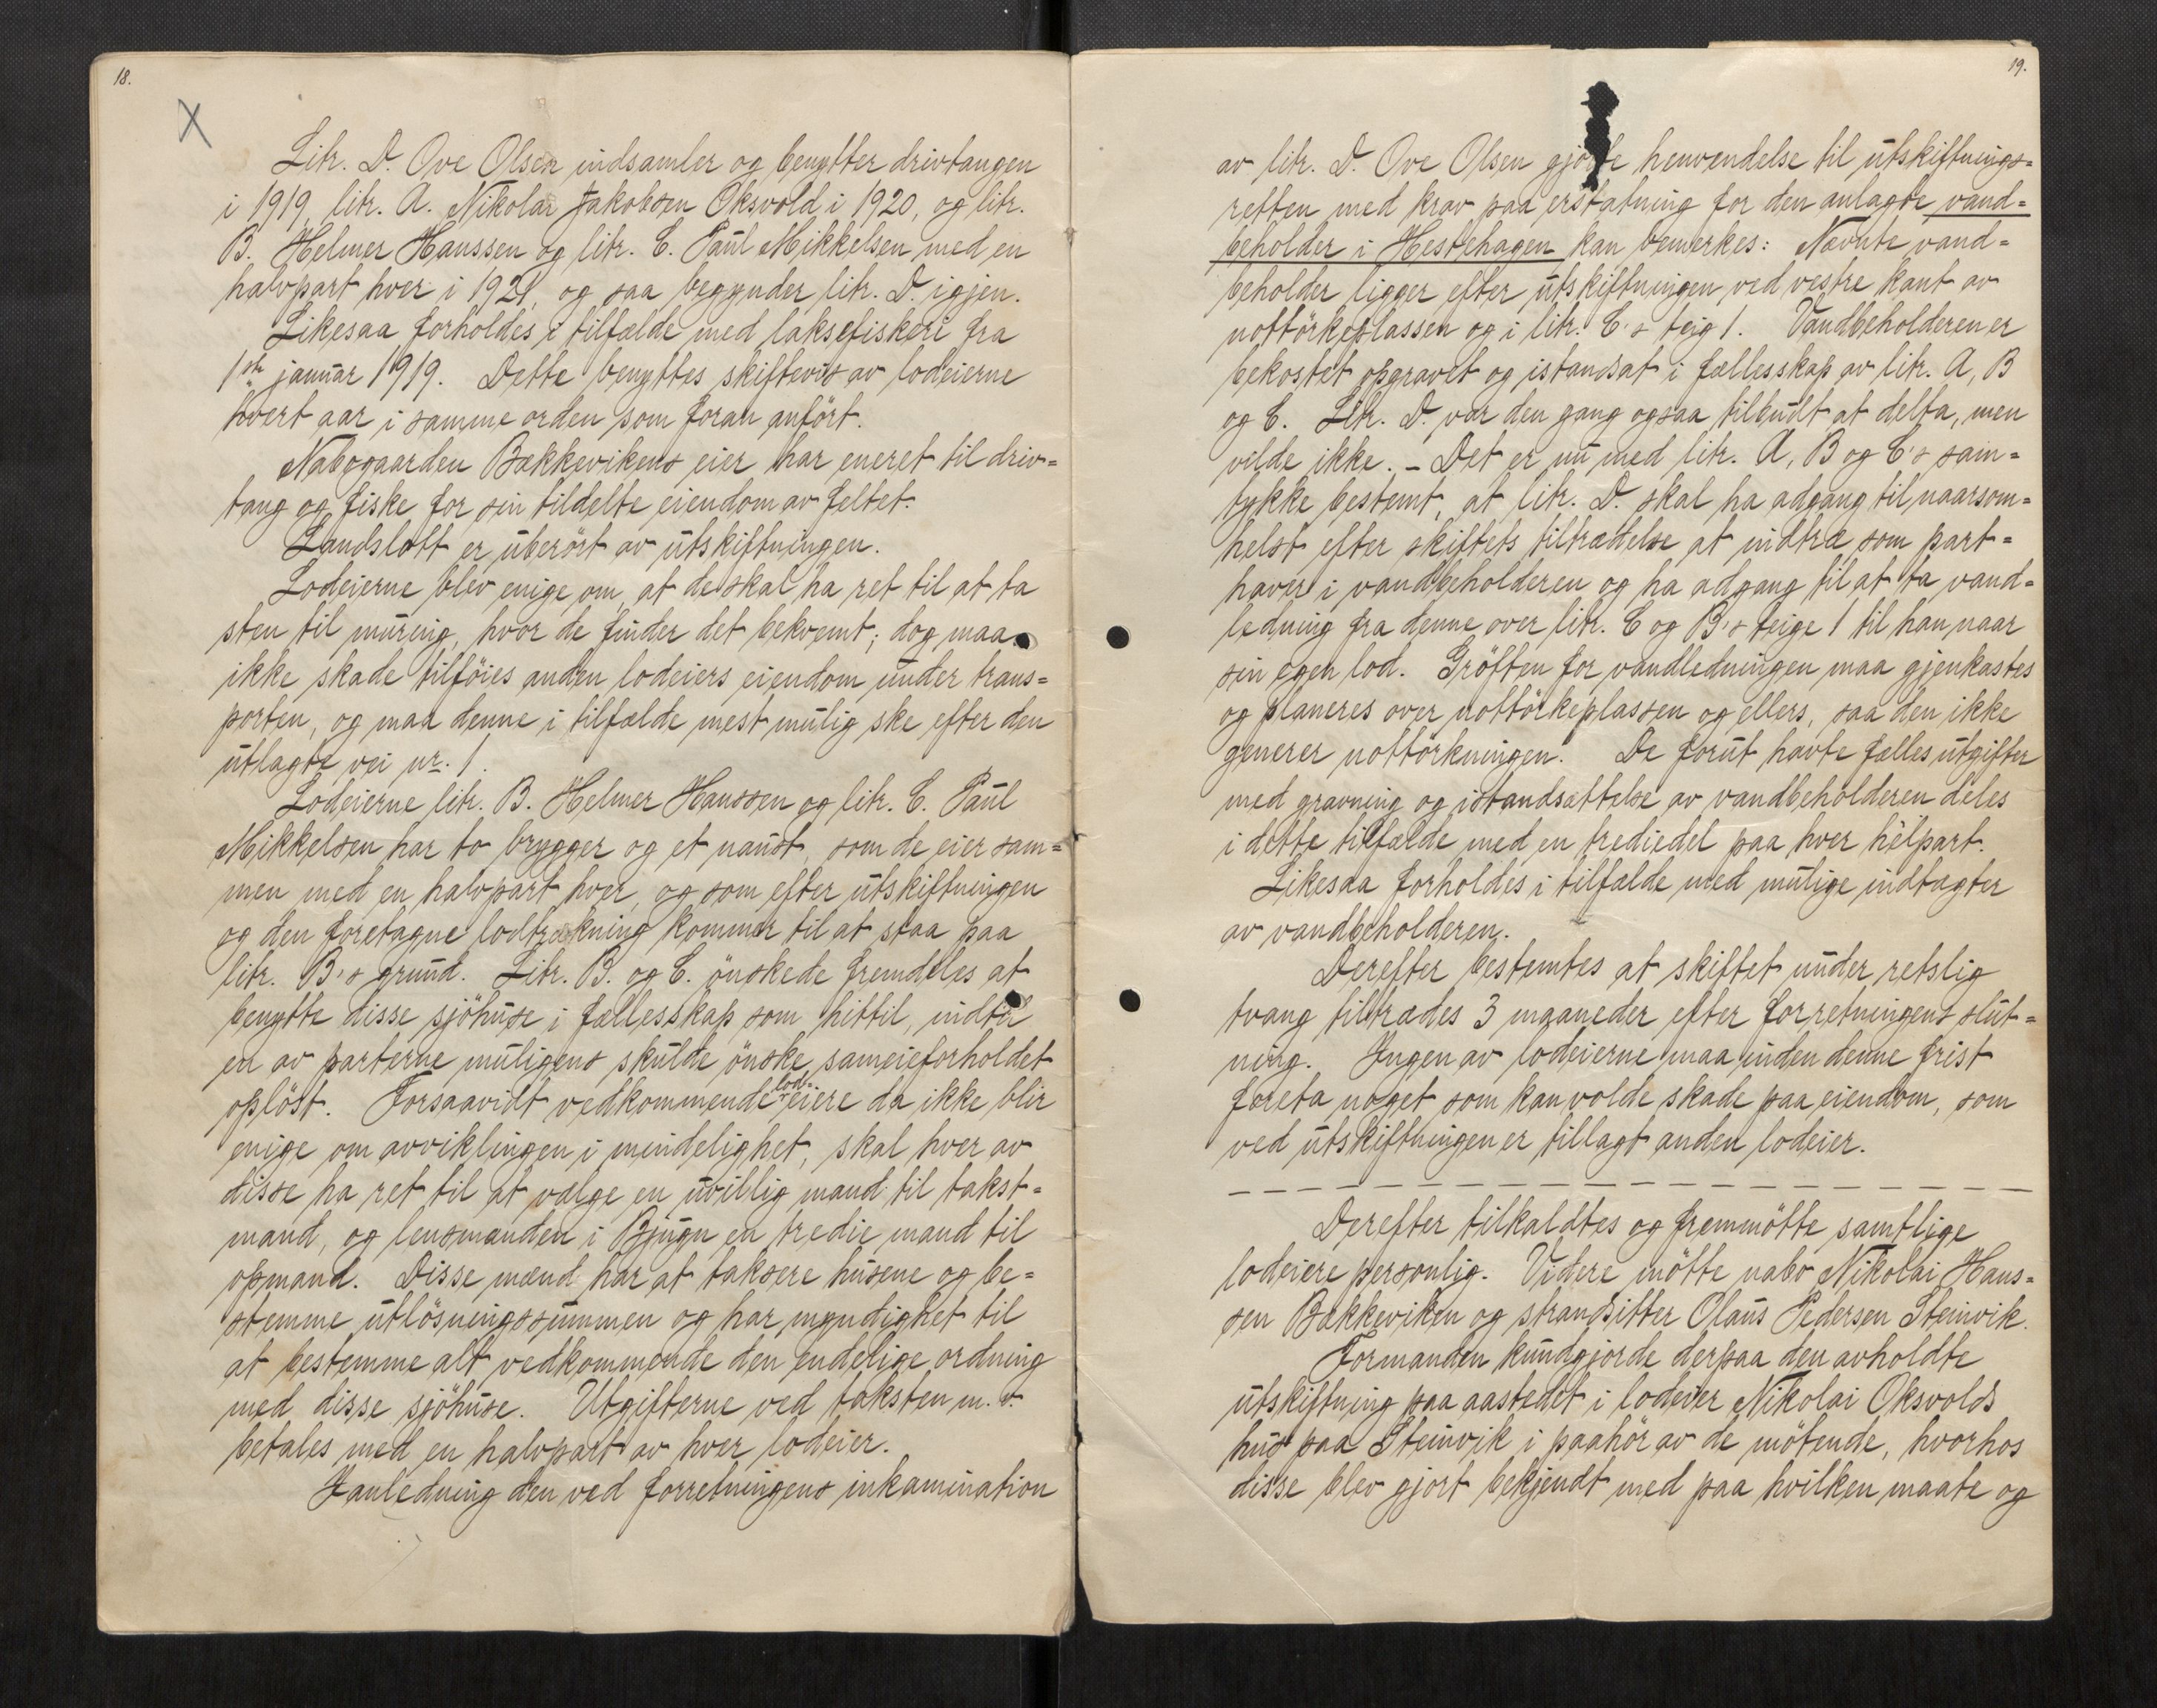 18.
X
Litr. D. Ove Olsen indsamler og benytter drivtangen
i 1919, litr. A. Nikolai Jakobsen Oksvold i 1920, og litr.
B. Helmer Hanssen og litr. C. Paul Mikkelsen med en
halvpart hver i 1921, og saa begynder litr. D. igjen.
Likesaa forholdes i tilfælde med laksefiskeri fra
1ste januar 1919. Dette benyttes skiftevis av lodeierne
hvert aar i samme orden som foran anført.
Nabogaarden Bækkevikens eier har eneret til driv=
tang og fiske for sin tildelte eiendom av feltet.
Landslott er uberørt av utskiftningen.
Lodeierne blev enige om, at de skal ha ret til at ta
sten til muring, hvor de finder det bekvemt; dog maa
ikke skade tilføies anden lodeiers eiendom under trans=
porten, og maa denne i tilfælde mest mulig ske efter den
utlagte vei nr. 1.
Lodeierne litr. B. Helmer Hanssen og litr. C. Paul
Mikkelsen har to brygger og et naust, som de eier sam=
men med en halvpart hver, og som efter utskiftningen
og den foretagne lodtrækning kommer til at staa paa
litr. B's grund. Litr. B. og C. ønskede fremdeles at
benytte disse sjøhuse i fællesskap som hittil, indtil
en av parterne muligens skulde ønske sameieforholdet
opløst. Forsaavidt vedkommende lod=eiere da ikke blir
enige om avviklingen i mindelighet, skal hver av
disse ha ret til at vælge en uvillig mand til takst=
mand, og lensmanden i Bjugn en tredie mand til
opmand. Disse mænd har at taksere husene og be=
stemme utløsningssummen og har myndighet til
at bestemme alt vedkommende den endelige ordning
med disse sjøhuse. Utgifterne ved taksten m. v.
betales med en halvpart av hver lodeier.
I anledning den ved forretningens inkamination
19.
av litr. D. Ove Olsen gjorte henvendelse til utskiftnings=
retten med krav paa erstatning for den anlagte vand=
beholder i Hestehagen kan bemerkes: Nævnte vand=
beholder ligger efter utskiftningen ved vestre kant av
nottørkeplassen og i litr. C's teig 1. Vandbeholderen er
bekostet opgravet og istandsat i fællesskap av litr. A, B
og C. Litr. D. var den gang ogsaa tilbudt at delta, men
vilde ikke. – Det er nu med litr. A, B og C's sam=
tykke bestemt, at litr. D. skal ha adgang til naarsom=
helst efter skiftets tiltrædelse at indtræ som part=
haver i vandbeholderen og ha adgang til at ta vand=
ledning fra denne over litr. C og B's teige 1 til han naar
sin egen lod. Grøften for vandledningen maa gjenkastes
og planeres over nottørkeplassen og ellers, saa den ikke
generer nottørkningen. De forut havte fælles utgifter
med gravning og istandsættelse av vandbeholderen deles
i dette tilfælde med en trediedel paa hver helpart.
Likesaa forholdes i tilfælde med mulige indtægter
av vandbeholderen.
Derefter bestemtes at skiftet under retslig
tvang tiltrædes 3 maaneder efter forretningens slut=
ning. Ingen av lodeierne maa inden denne frist
foreta noget som kan volde skade paa eiendom, som
ved utskiftningen er tillagt anden lodeier.
Derefter tilkaldtes og fremmøtte samtlige
lodeiere personlig. Videre møtte nabo Nikolai Hans=
sen Bækkeviken og strandsitter Olaus Pedersen Steinvik.
Formanden kundgjorde derpaa den avholdte
utskiftning paa aastedet i lodeier Nikolai Oksvolds
hus paa Steinvik i paahør av de møtende, hvorhos
disse blev gjort bekjendt med paa hvilken maate og